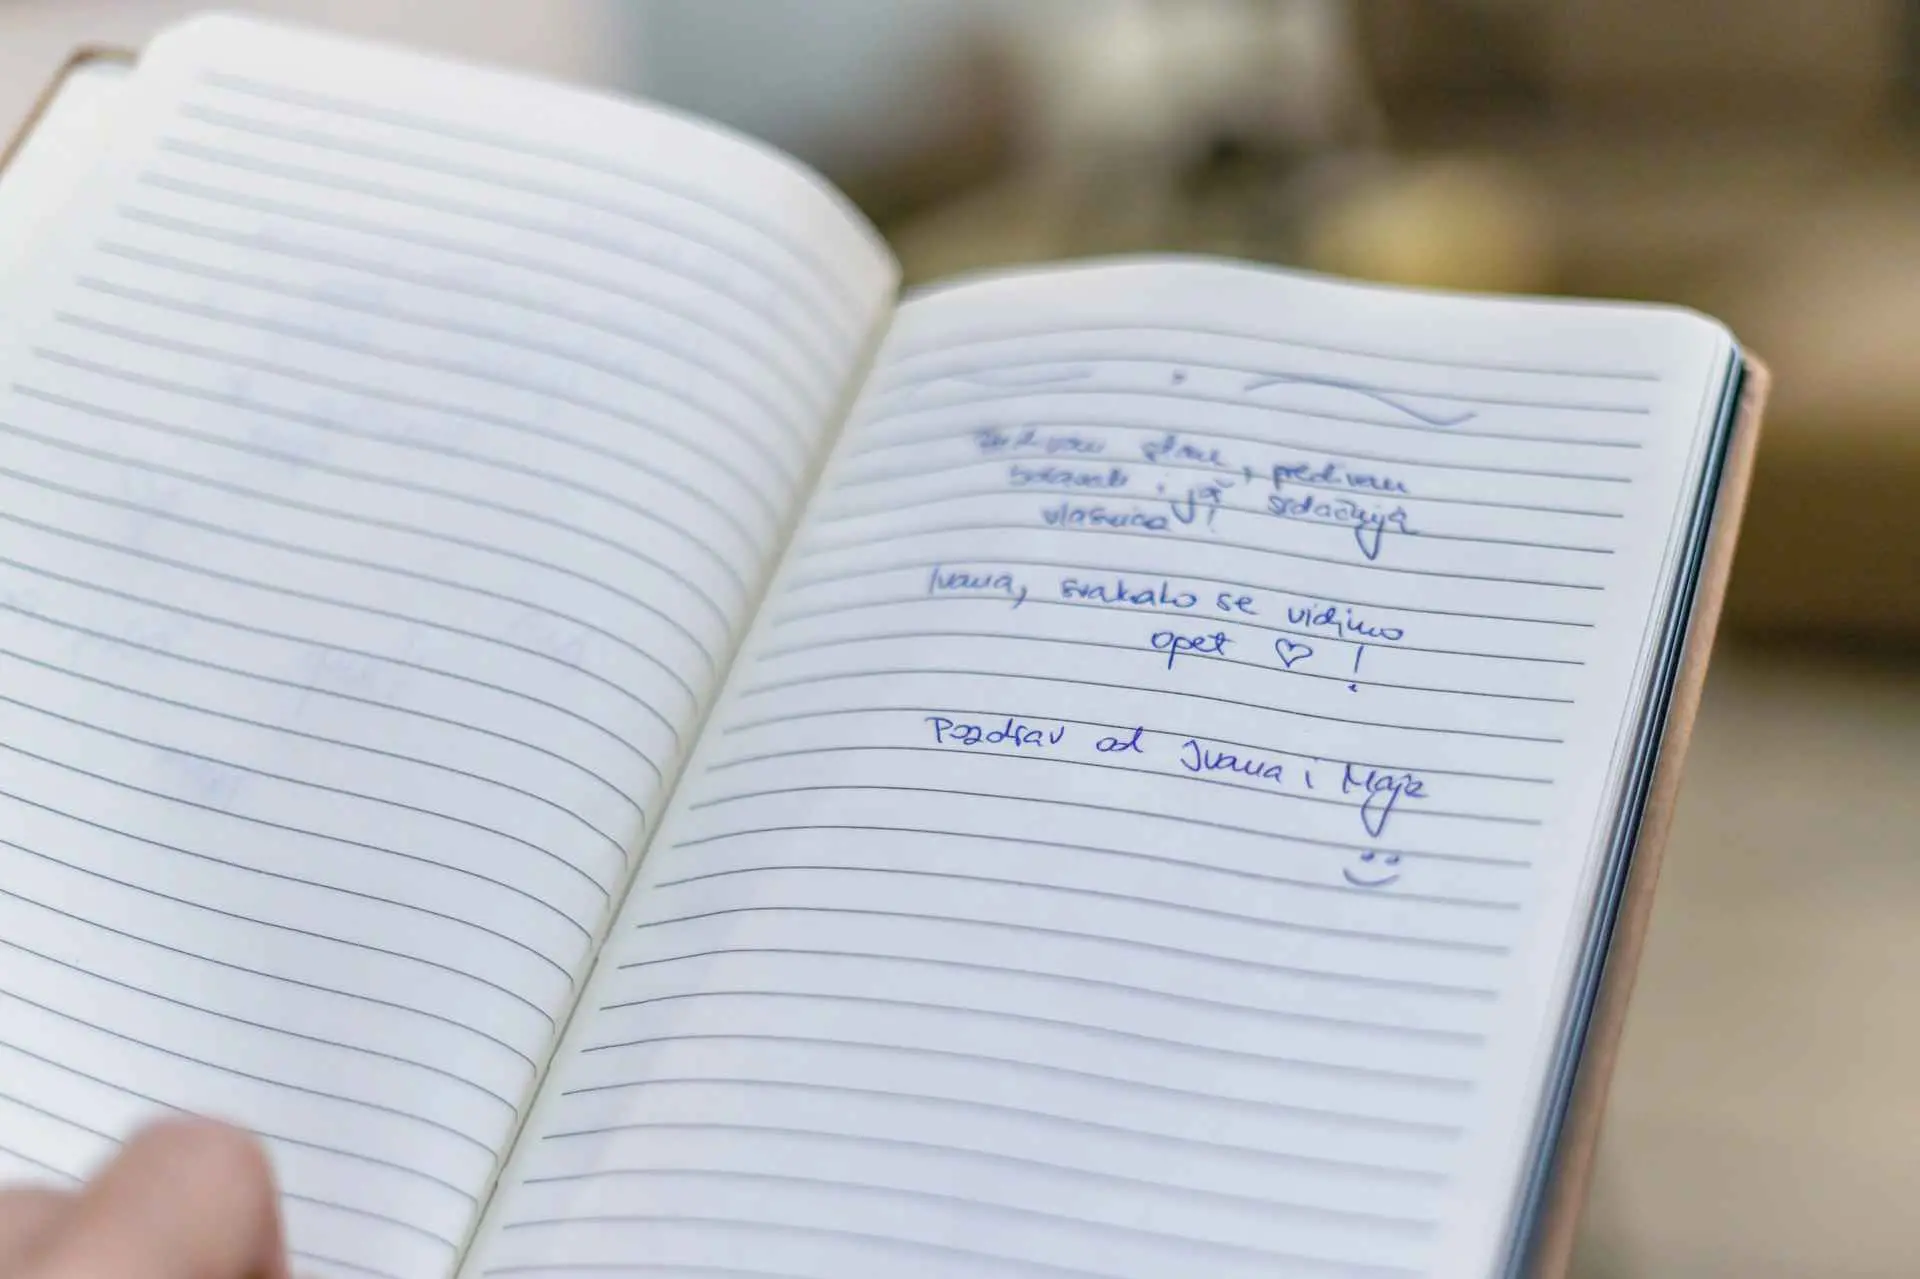 stan, predivan
i još srdačnija
vlasnica!
Ivana, svakako se vidimo
opet ♡ !
Pozdrav od Ivana i Maje